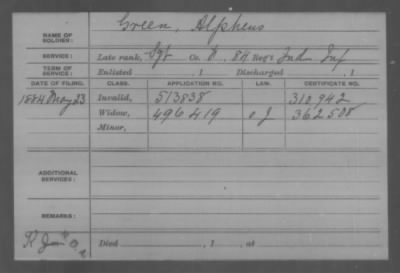 NAME OF SOLDIER: Green, Alpheus
SERVICE: Late rank, Sgt Co. D, 84 Reg't Ind Inf
TERM OF SERVICE: Enlisted , 1 Discharged , 1
DATE OF FILING. CLASS. APPLICATION NO. LAW. CERTIFICATE NO.
1884 May 23 Invalid, 513838 310942
Widow, 496419 o J 362508
Minor,
ADDITIONAL SERVICES:
REMARKS:
Died , 1 , at